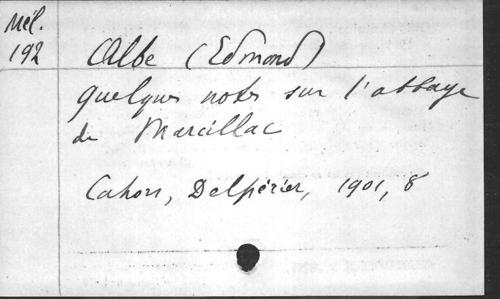 Mél.
192
Albe (Edmond)
Quelques notes sur l'abbaye
de Marcillac
Cahors, Delpérier, 1901, 8°